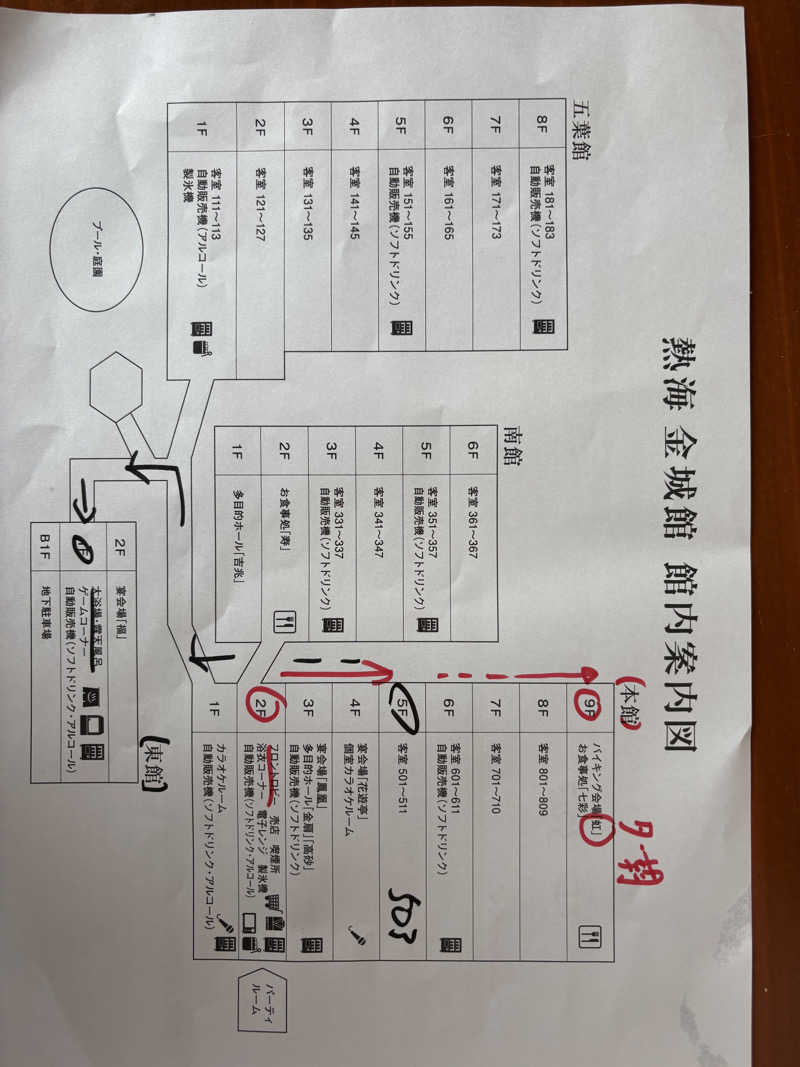 熱海 金城館 館内案内図
五葉館
8F 客室 181～183
自動販売機(ソフトドリンク)
7F 客室 171～173
6F 客室 161～165
5F 客室 151～155
自動販売機(ソフトドリンク)
4F 客室 141～145
3F 客室 131～135
2F 客室 121～127
1F 客室 111～113
自動販売機(アルコール)
製氷機
プール・庭園
南館
6F 客室 361～367
5F 客室 351～357
自動販売機(ソフトドリンク)
4F 客室 341～347
3F 客室 331～337
自動販売機(ソフトドリンク)
2F お食事処「寿」
1F 多目的ホール「吉兆」
本館
夕・朝
9F バイキング会場「虹」
お食事処「七彩」
8F 客室 801～809
7F 客室 701～710
6F 客室 601～611
自動販売機(ソフトドリンク)
5F 客室 501～511
503
4F 宴会場「花遊亭」
個室カラオケルーム
3F 宴会場「鳳凰」
多目的ホール「金扇」「高砂」
自動販売機(ソフトドリンク)
2F フロントロビー 売店 喫煙所
浴衣コーナー 電子レンジ 製氷機
自動販売機(ソフトドリンク・アルコール)
1F カラオケルーム
自動販売機(ソフトドリンク・アルコール)
パーティ
ルーム
東館
2F 宴会場「福」
1F 大浴場・露天風呂
ゲームコーナー
自動販売機(ソフトドリンク・アルコール)
B1F 地下駐車場